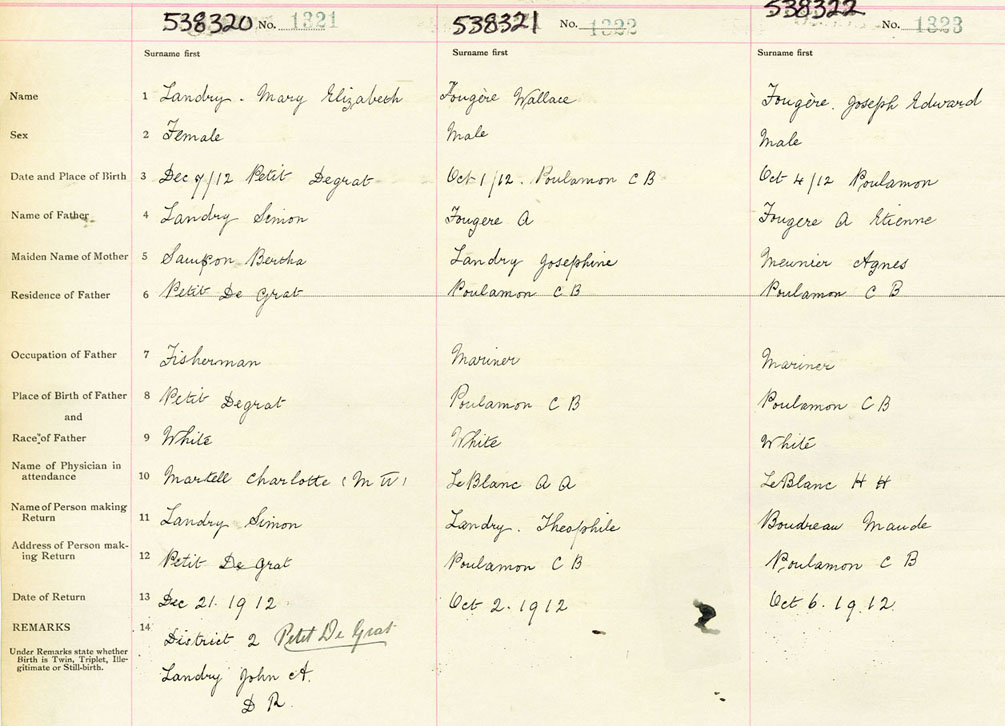 538320 No. 1321 538321 No. 1322 538322 No. 1323
Surname first Surname first Surname first
Name 1 Landry. Mary Elizabeth Fougère Wallace Fougère. Joseph Edward
Sex 2 Female Male Male
Date and Place of Birth 3 Dec 7/12 Petit Degrat Oct 1/12. Poulamon C B Oct 4/12 Poulamon
Name of Father 4 Landry Simon Fougere A Fougere A Etienne
Maiden Name of Mother 5 Sampson Bertha Landry Josephine Meunier Agnes
Residence of Father 6 Petit De Grat Poulamon C B Poulamon C B
Occupation of Father 7 Fisherman Mariner Mariner
Place of Birth of Father 8 Petit Degrat Poulamon C B Poulamon C B
and
Race of Father 9 White White White
Name of Physician in
attendance 10 Martell Charlotte (M W) LeBlanc A A LeBlanc H H
Name of Person making
Return 11 Landry Simon Landry. Theophile Boudreau Maude
Address of Person mak-
ing Return 12 Petit De Grat Poulamon C B Poulamon C B
Date of Return 13 Dec 21. 1912 Oct 2. 1912 Oct 6. 1912
REMARKS 14 District 2 Petit De Grat
Under Remarks state whether
Birth is Twin, Triplet, Ille-
gitimate or Still-birth.
Landry John A.
D R.